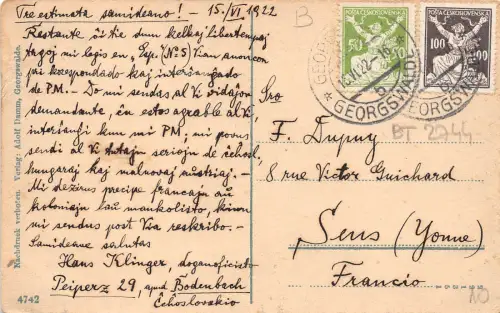 Tre estimata samideano! - 15./VI 1922
Restante ĉi tie dum kelkaj libertempaj
tagoj mi legis en „Esp. (No 5) Vian anoncon
pri korespondado kaj interŝanĝado
de P.M. - Do mi sendas al Vi vidaĵon
demandante, ĉu estos agrable al Vi,
interŝanĝi kun mi P.M.; mi povus
sendi al Vi tutajn seriojn de ĉehosl.,
hungaraj kaj malnovaj aŭstriaj. -
Mi dezirus precipe francajn aŭ
koloniajn laŭ mankolisto, kiun
mi sendus post Via reskribo. -
Samideane salutas
Hans Klinger, doganoficisto
Peiperz 29, apud Bodenbach
Ĉehoslovakio
Nachdruck verboten. Verlag: Adolf Damm, Georgswalde.
4742
B
POŠTA ČESKOSLOVENSKÁ
50 50
POŠTA ČESKOSLOVENSKÁ
100 100
GEORGSWALDE
GEORGSWALDE
BT 2744
Sro
F. Dupuy
8 rue Victor Guichard
Sens (Yonne)
Francio